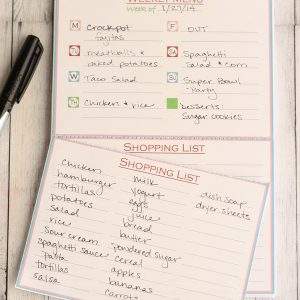 WEEKLY MENU
week of 1/27/14
M Crockpot fajitas
F OUT
Tu meatballs & baked potatoes
Sa Spaghetti salad & corn
W Taco Salad
Su Super Bowl Party
Th Chicken & rice
desserts: Sugar cookies
SHOPPING LIST
SHOPPING LIST
chicken
hamburger
tortillas
potatoes
salad
rice
sour cream
spaghetti sauce
pasta
tortillas
salsa
milk
yogurt
eggs
juice
bread
butter
powdered sugar
cereal
apples
bananas
carrots
dish soap
dryer sheets